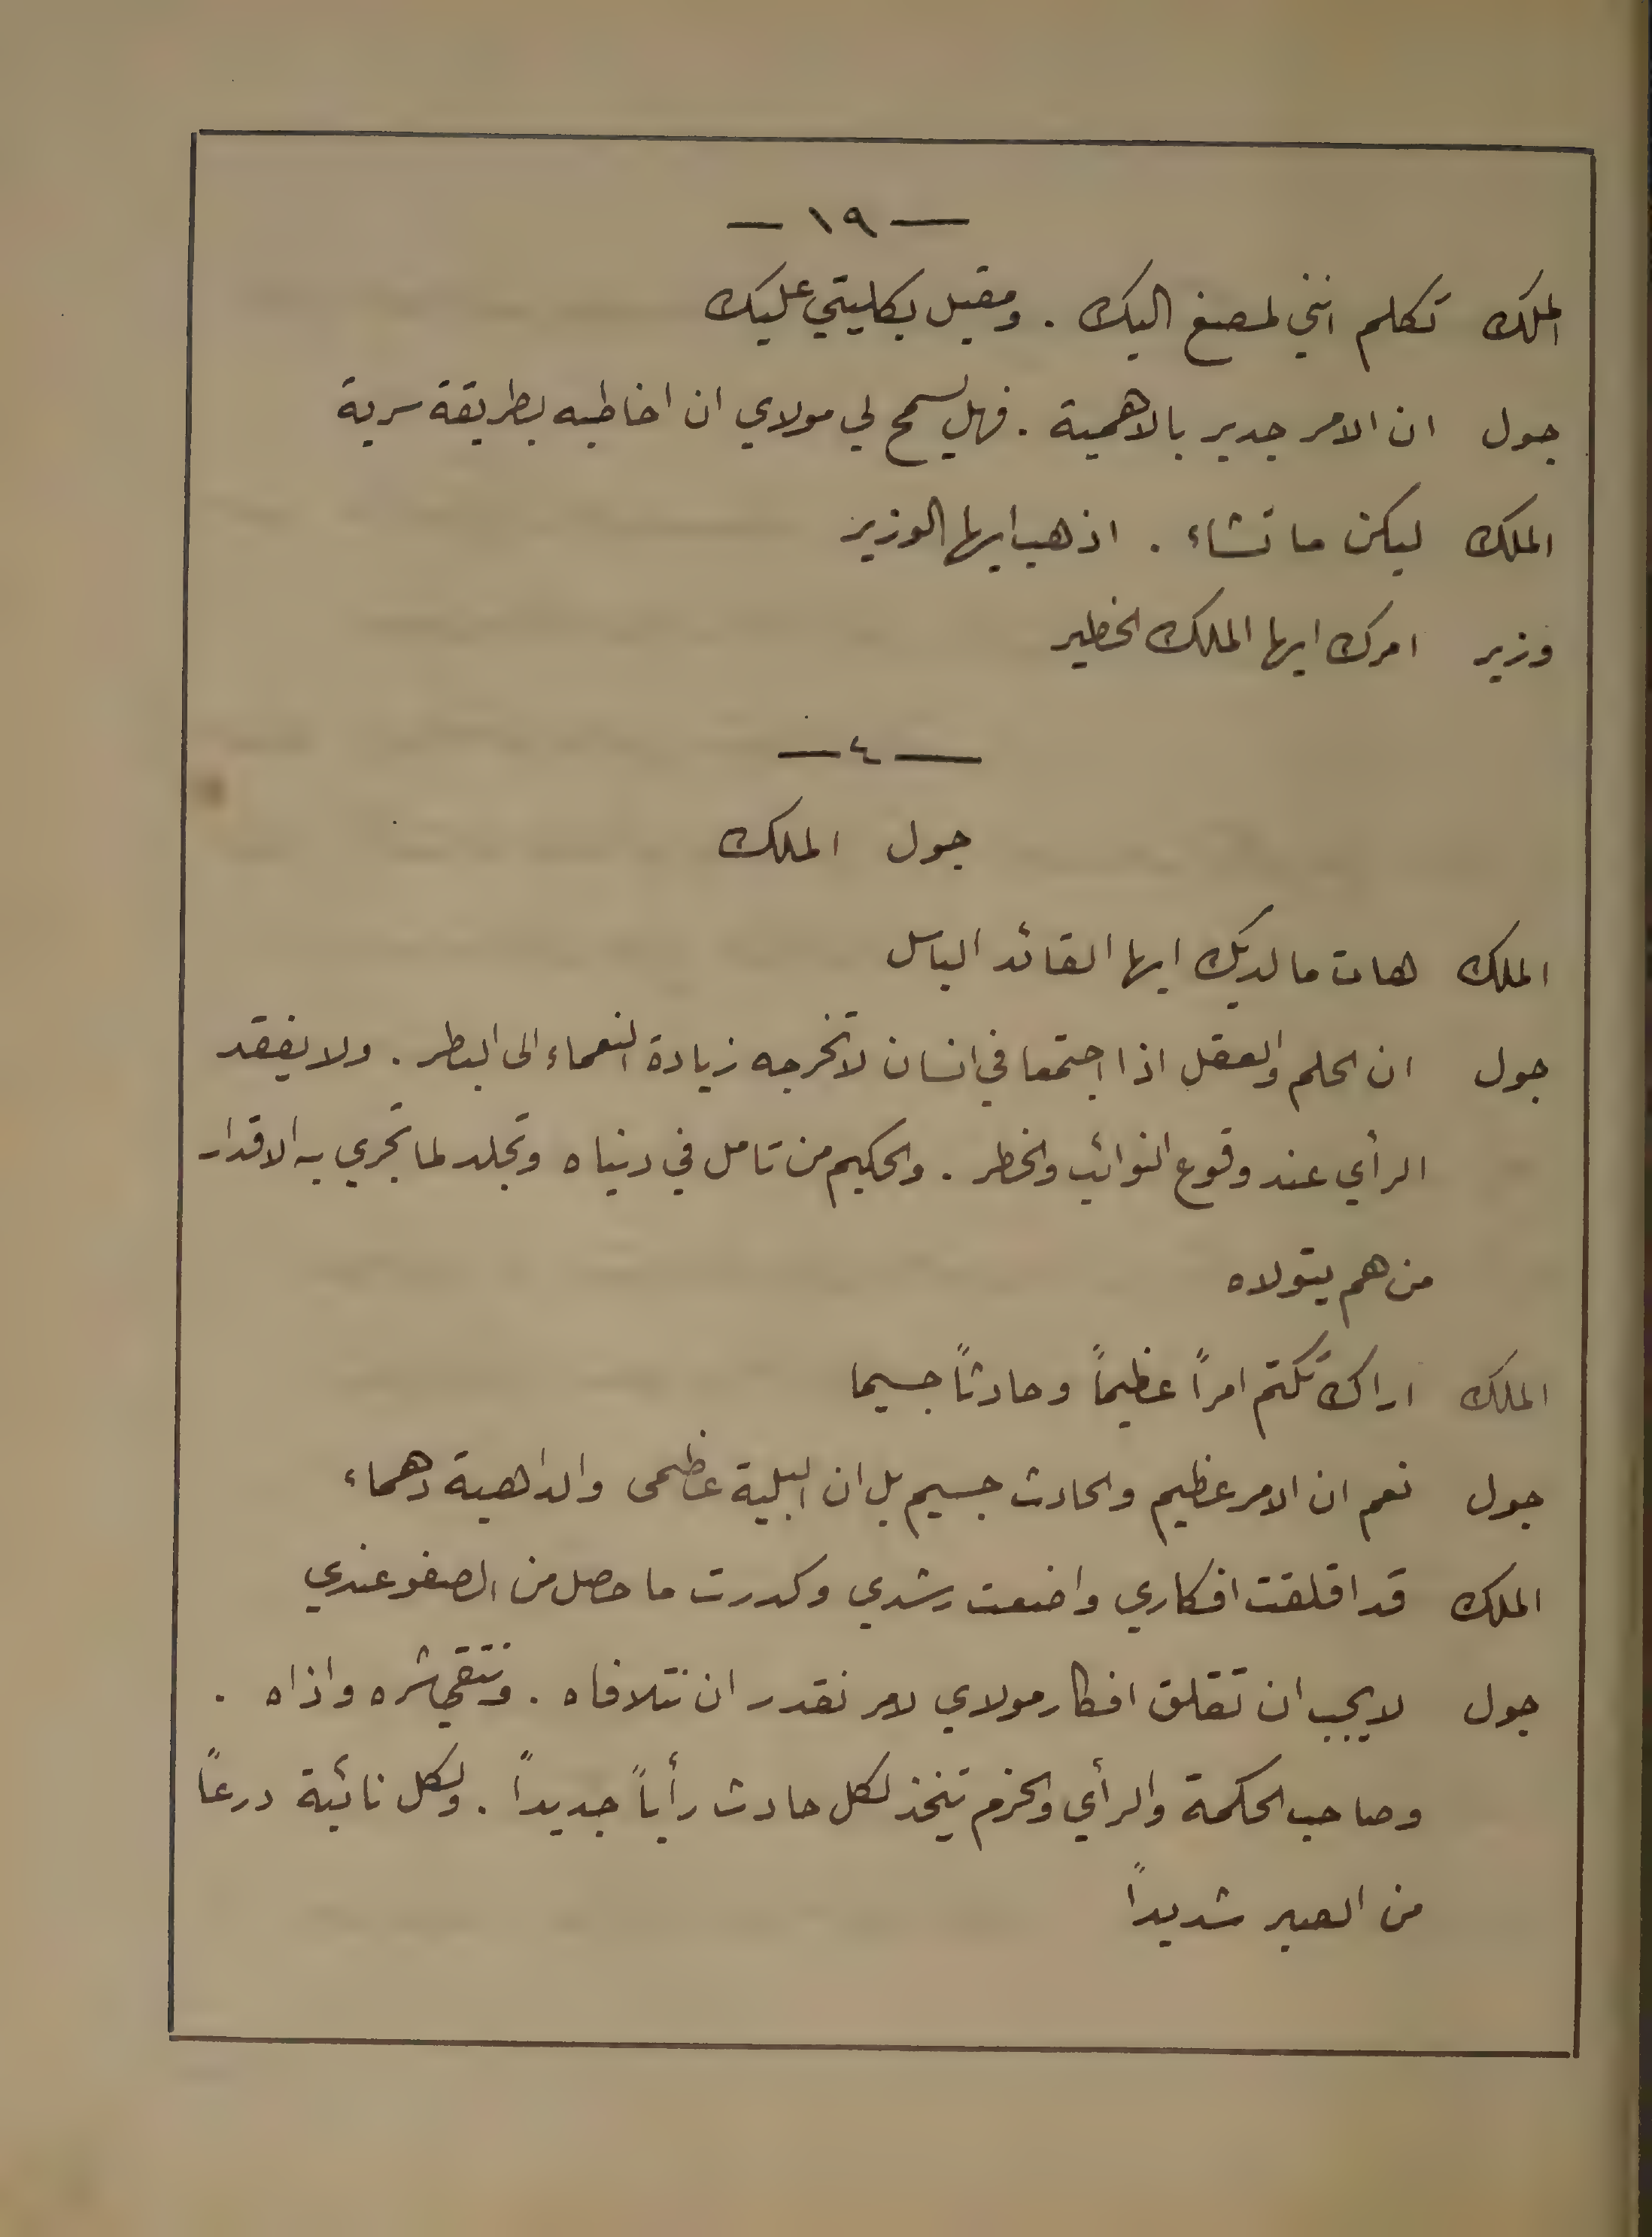 — ١٩ —
الملك تكلم انني لمصغ اليك . ومقبل بكليتي عليك
جول ان الامر جدير بالاهمية . فهل يسمح لي مولاي ان اخاطبه بطريقة سرية
الملك ليكن ما تشاء . اذهب ايها الوزير
وزير امرك ايها الملك الخطير
— ٤ —
جول الملك
الملك هات ما لديك ايها القائد الباسل
جول ان الحلم والعقل اذا اجتمعا في انسان لا تخرجه زيادة النعماء الى البطر . ولا يفقد
الرأي عند وقوع النوائب والخطر . والحكيم من تامل في دنياه وتجلد لما تجري به الاقدار
من هم يتولاه
الملك اراك تكتم امراً عظيماً وحادثاً جسيما
جول نعم ان الامر عظيم والحادث جسيم بل ان البلية عظمى والداهية دهماء
الملك قد اقلقت افكاري واضعت رشدي وكدرت ما حصل من الصفو عندي
جول لا يجب ان تقلق افكار مولاي لامر نقدر ان نتلافاه . ونتقي شره واذاه .
وصاحب الحكمة والرأي والحزم يتخذ لكل حادث رأياً جديداً . ولكل نائبة درعاً
من الصبر شديداً